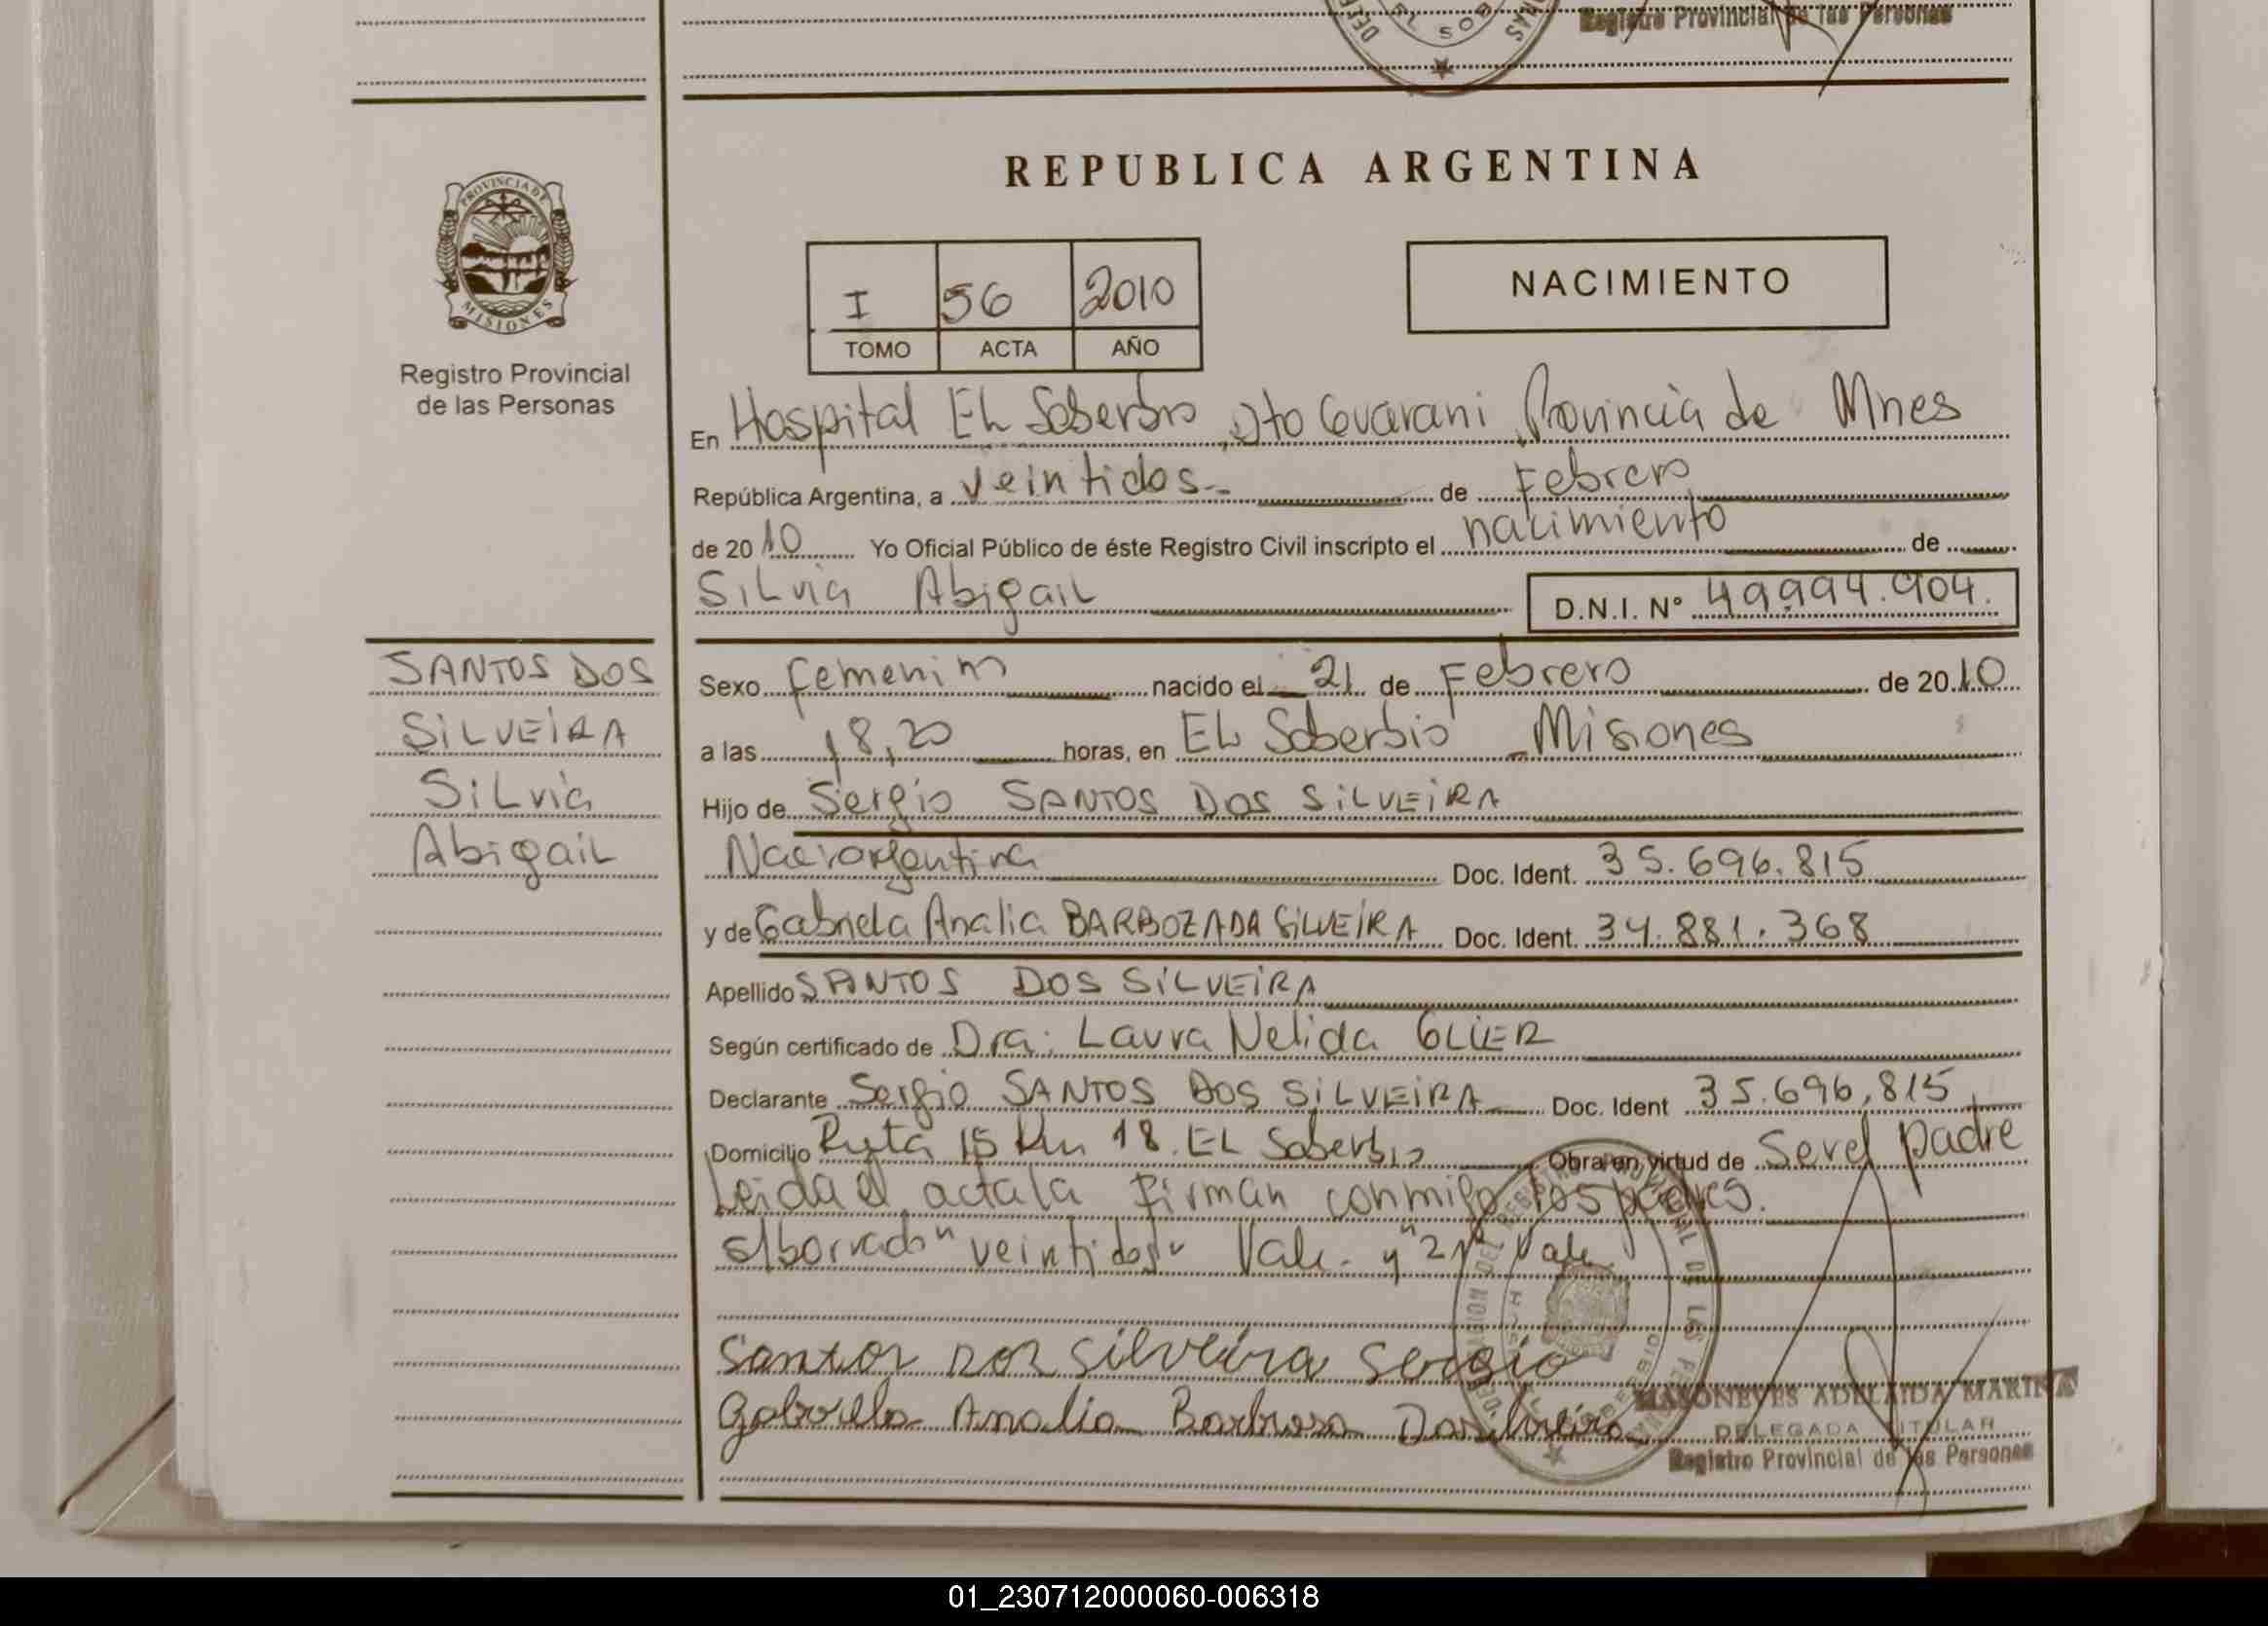 Registro Provincial de las Personas
PROVINCIA DE
MISIONES
Registro Provincial
de las Personas
REPUBLICA ARGENTINA
I 56 2010
TOMO ACTA AÑO
NACIMIENTO
En Hospital EL Soberbio Dto Guarani Provincia de Mnes
República Argentina, a veintidos de Febrero
de 2010 Yo Oficial Público de éste Registro Civil inscripto el nacimiento de
SiLvia Abigail D.N.I. Nº 49.994.904.
SANTOS DOS
SiLVEiRA
SiLvia
Abigail
Sexo femenino nacido el 21 de Febrero de 2010
a las 18,20 horas, en EL Soberbio - Misiones
Hijo de Sergio SANTOS DOS SiLVEiRA
Nac: argentina Doc. Ident. 35.696.815
y de Gabriela Analia BARBOZA DA SiLVEiRA Doc. Ident. 34.881.368
Apellido SANTOS DOS SiLVEiRA
Según certificado de Dra: Laura Nelida GLIER
Declarante Sergio SANTOS DOS SiLVEiRA Doc. Ident 35.696,815
Domicilio Ruta 15 Km 18. EL Soberbio Obra en virtud de Ser el padre
Leida el acta la firman conmigo los padres.
Borrado "veintidos" Vale. y "21" Vale
Santos Dos silveira Sergio
Gabriela Analia Barboza Da silveira
ADELAIDA MARINA
DELEGADA TITULAR
Registro Provincial de las Personas
01_230712000060-006318